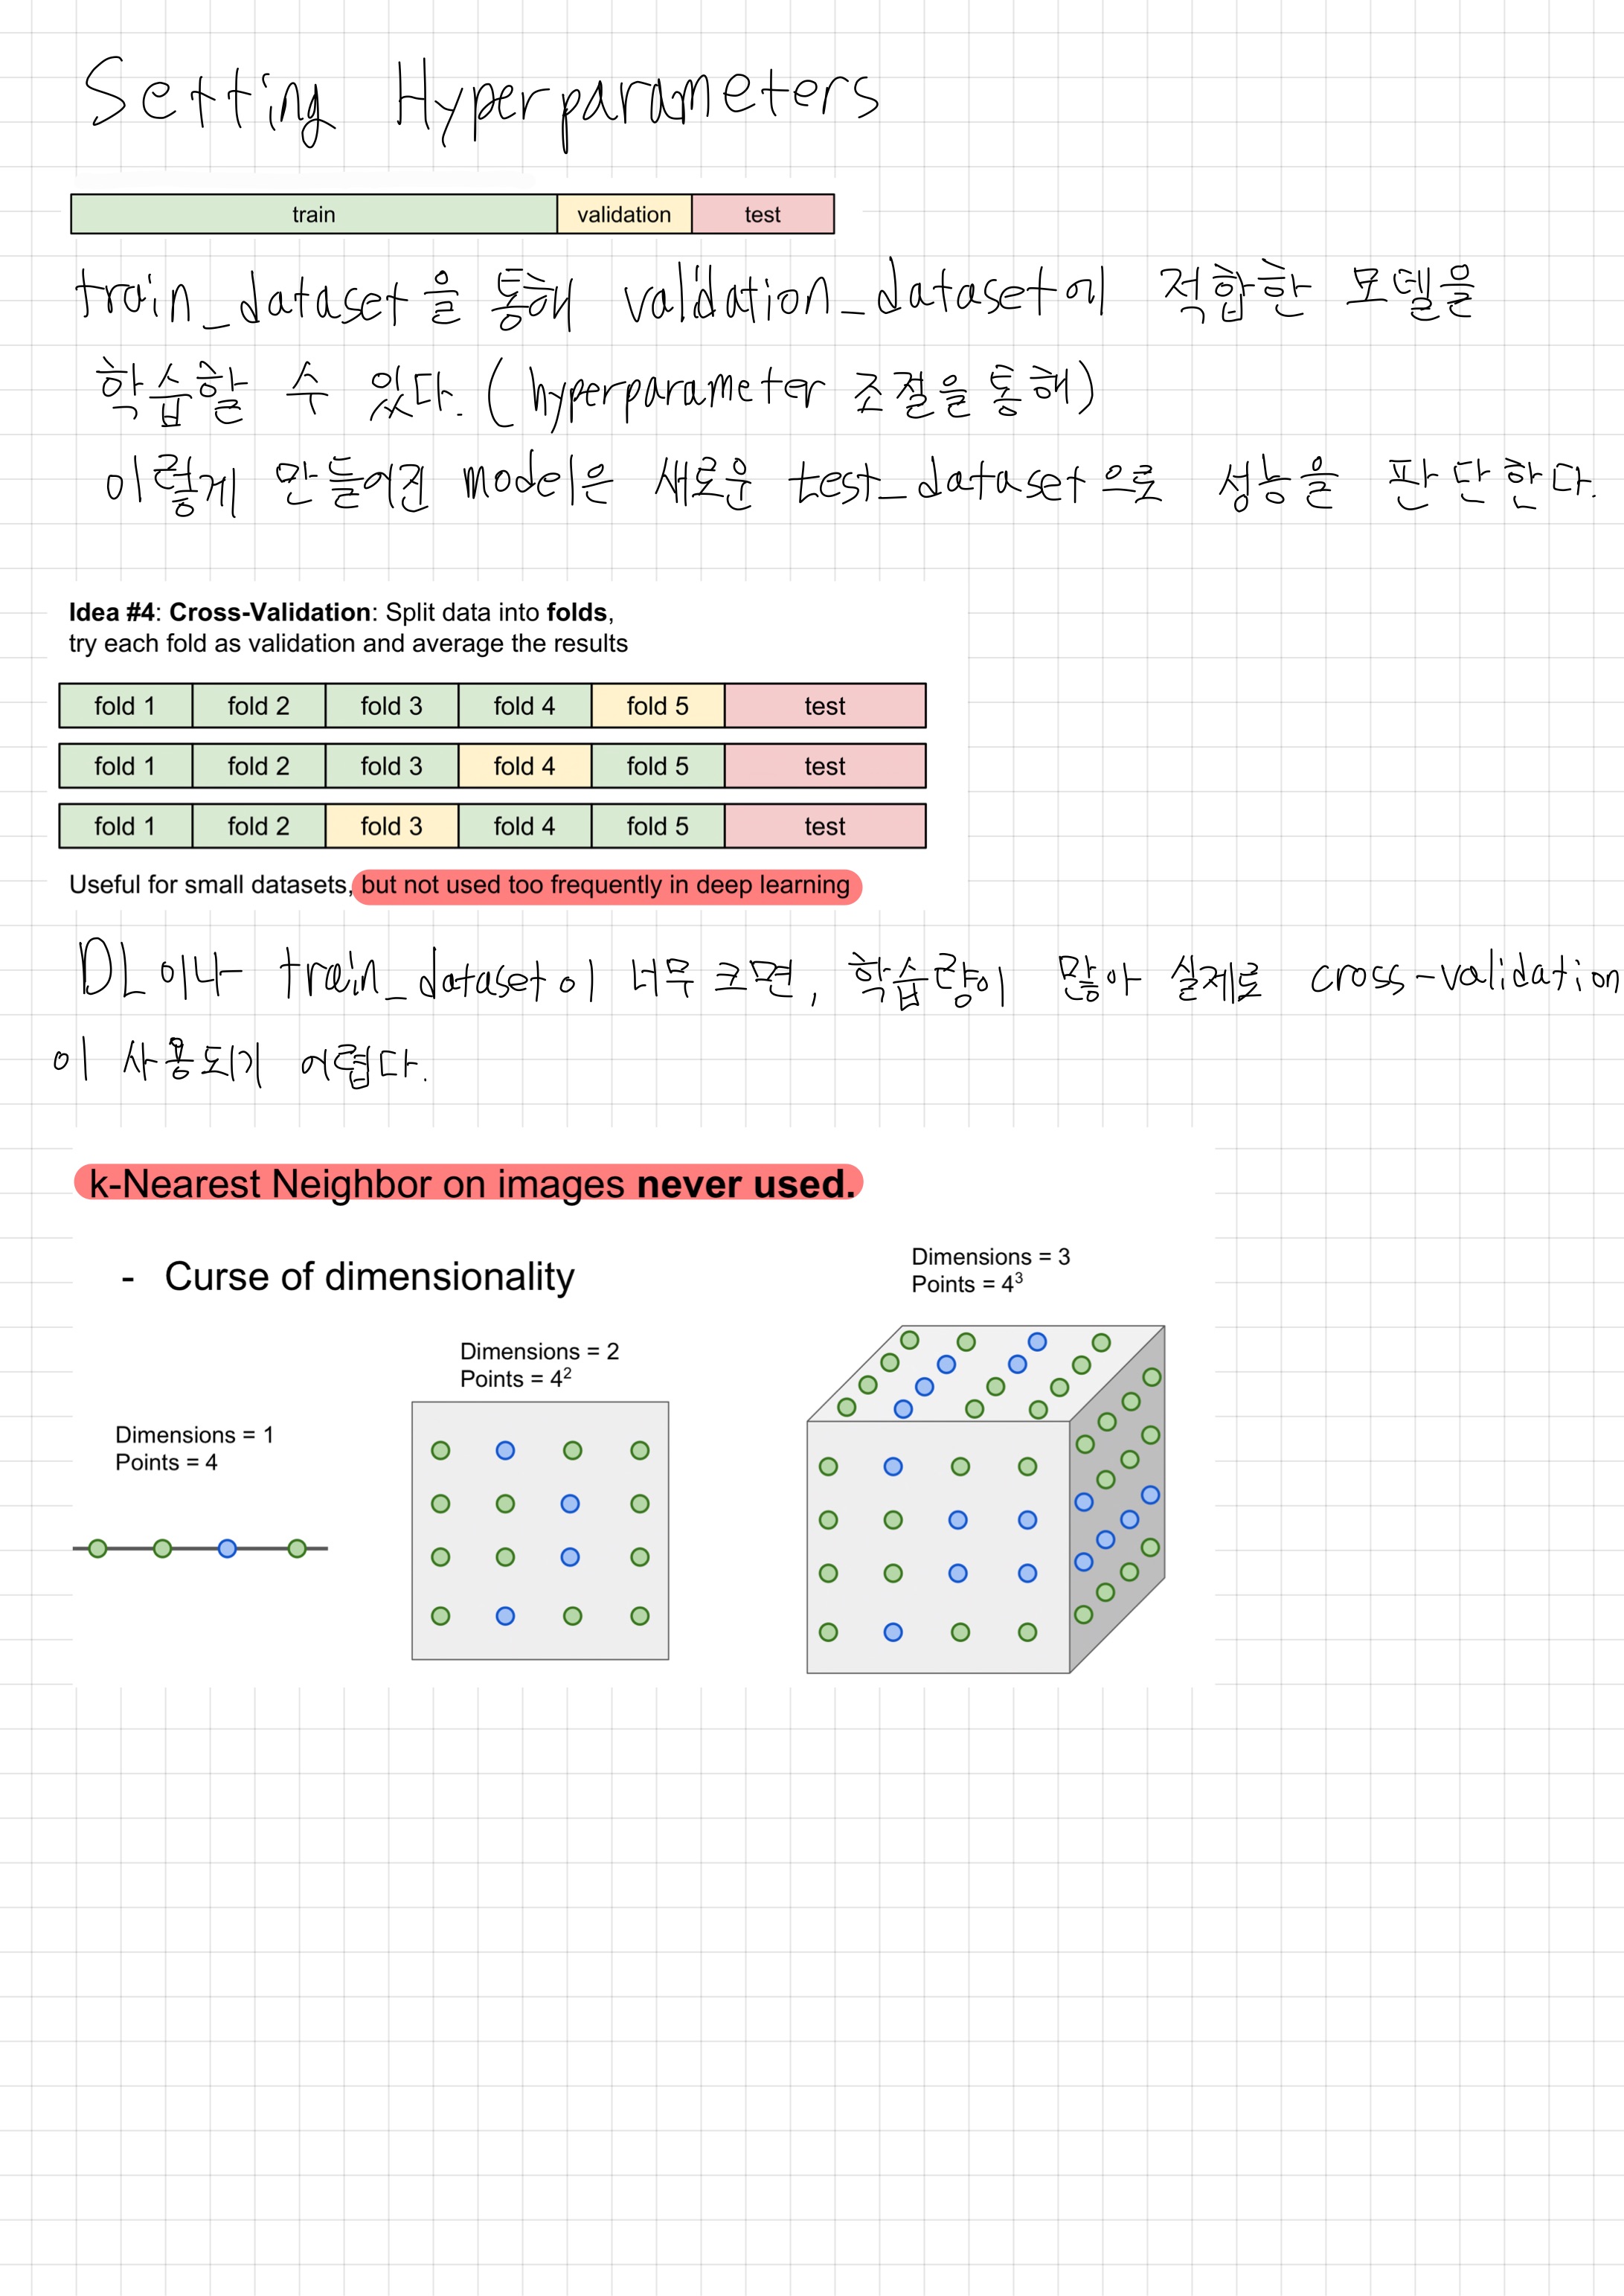 Setting Hyperparameters
train validation test
train_dataset을 통해 validation_dataset에 적합한 모델을
학습할 수 있다. (hyperparameter 조절을 통해)
이렇게 만들어진 model은 새로운 test_dataset으로 성능을 판단한다.
Idea #4: Cross-Validation: Split data into folds,
try each fold as validation and average the results
fold 1 fold 2 fold 3 fold 4 fold 5 test
fold 1 fold 2 fold 3 fold 4 fold 5 test
fold 1 fold 2 fold 3 fold 4 fold 5 test
Useful for small datasets, but not used too frequently in deep learning
DL이나 train_dataset이 너무 크면, 학습량이 많아 실제로 cross-validation
이 사용되기 어렵다.
k-Nearest Neighbor on images never used.
- Curse of dimensionality
Dimensions = 1
Points = 4
Dimensions = 2
Points = 4²
Dimensions = 3
Points = 4³